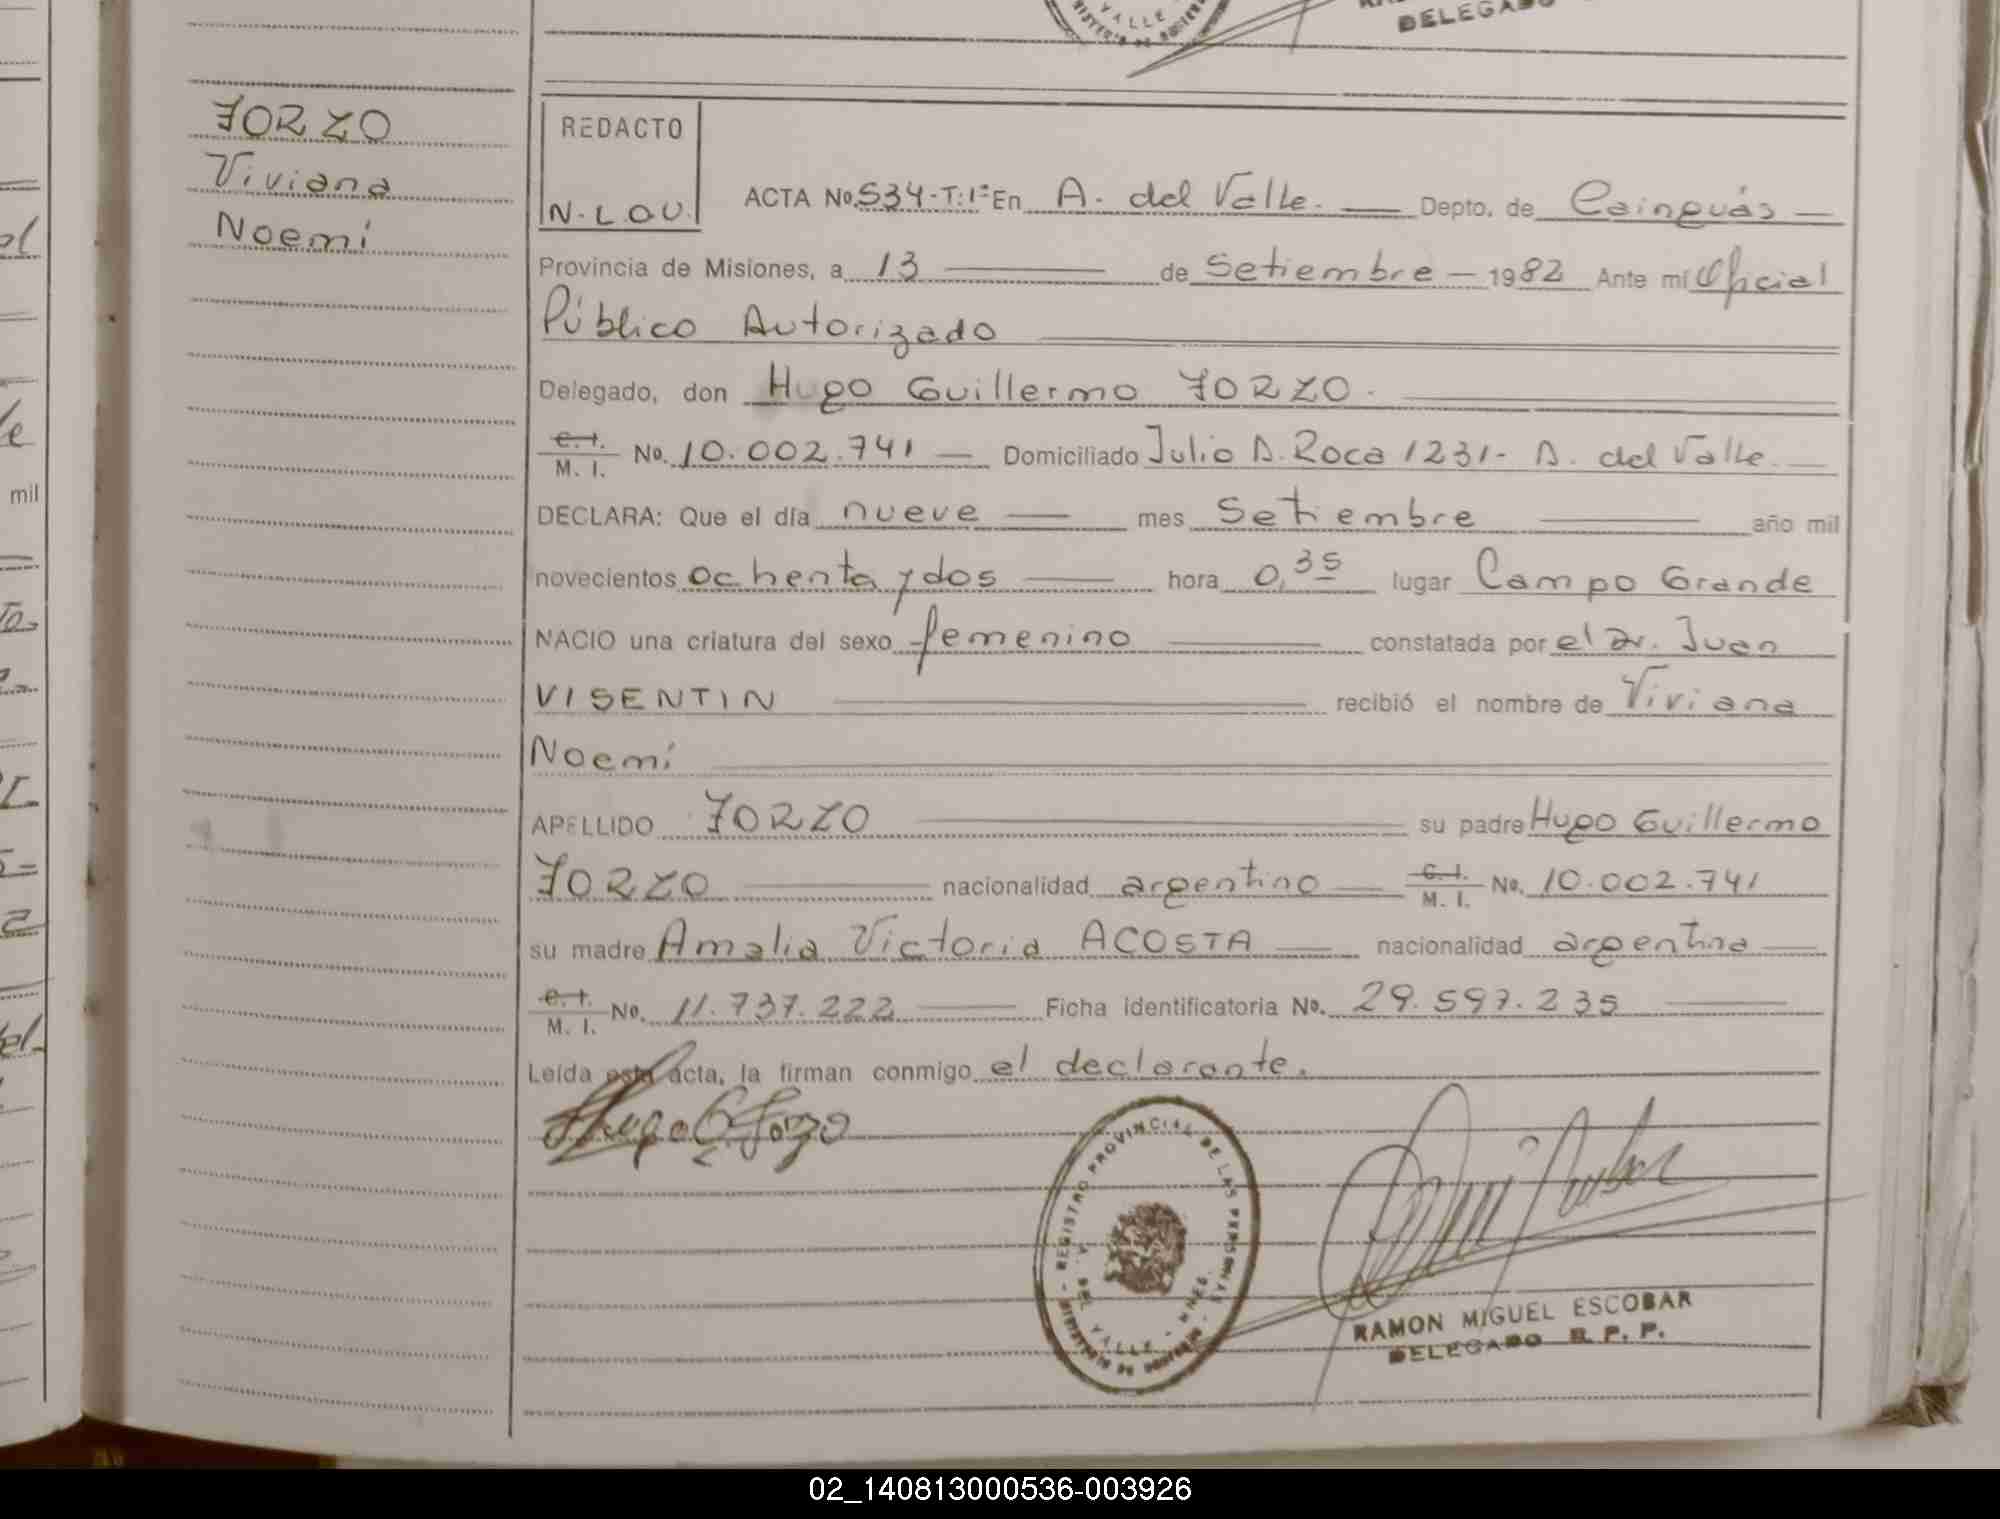 DELEGADO
FORZO
Viviana
Noemí
REDACTO
N.LOU.
ACTA No. 534-T:1º En A. del Valle. Depto. de Cainguás
Provincia de Misiones, a 13 de Setiembre 1982 Ante mí Oficial
Público Autorizado
Delegado, don Hugo Guillermo FORZO.
C.I. M. I. No. 10.002.741 Domiciliado Julio A. Roca 1231- A. del Valle.
DECLARA: Que el día nueve mes Setiembre año mil
novecientos ochenta y dos hora 0,35 lugar Campo Grande
NACIO una criatura del sexo femenino constatada por el Dr. Juan
VISENTIN recibió el nombre de Viviana
Noemí
APELLIDO FORZO su padre Hugo Guillermo
FORZO nacionalidad argentino C.I. M. I. No. 10.002.741
su madre Amalia Victoria ACOSTA nacionalidad argentina
C.I. M. I. No. 11.737.222 Ficha identificatoria No. 29.597.235
Leída esta acta, la firman conmigo el declarante.
Hugo G Forzo
REGISTRO PROVINCIAL DE LAS PERSONAS
A. DEL VALLE - MNES.
MINISTERIO DE GOBIERNO
RAMON MIGUEL ESCOBAR
DELEGADO R. P. P.
mil
02_140813000536-003926